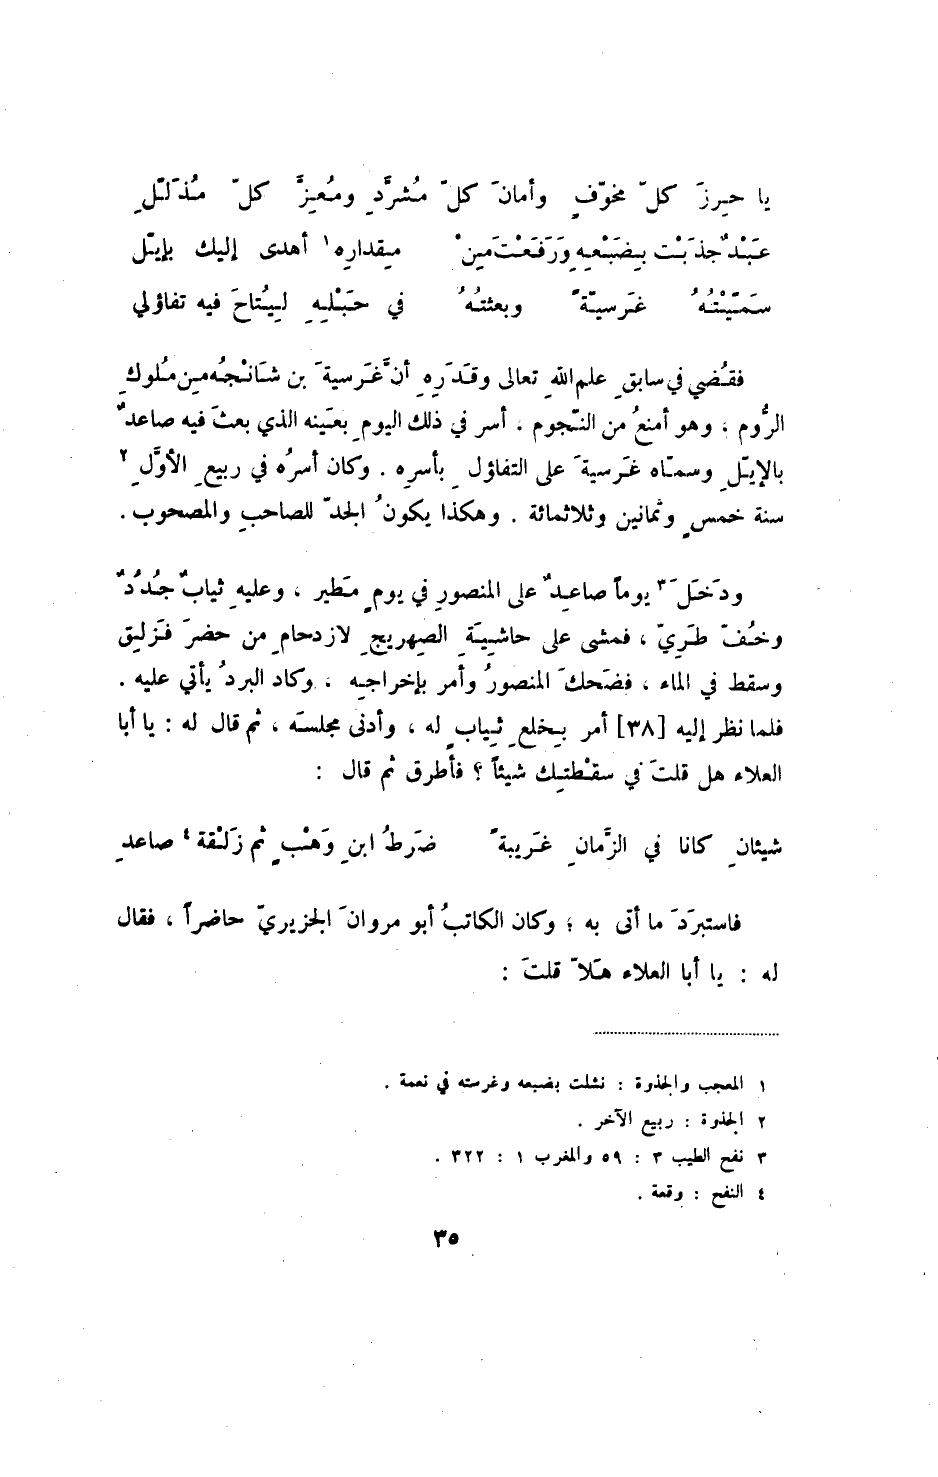 يا حِرزَ كلّ مخوّفٍ وأمانَ كلّ مُشرَّدٍ ومُعِزَّ كلّ مُذَلَّلِ
عَبْدٌ جذَبْت بِضَبْعِهِ وَرَفَعْتَ مِنْ مِقدارِه ١ أهدى إليك بإيّل
سَمَّيْتُهُ غَرسيّةً وبعثتُهُ في حَبْلِهِ لِيُتاحَ فيه تفاؤلي
فقُضي في سابقِ علم اللهِ تعالى وقَدَرِهِ أنَّ غَرسيةَ بن شَانْجُه مِن مُلوكِ
الرُّوم ، وهو أمنعُ من النّجوم ، أسر في ذلك اليومِ بعَينه الذي بعثَ فيه صاعدٌ
بالإيّلِ وسمّاه غَرسيةَ على التفاؤلِ بأسرِه . وكان أسرُه في ربيعِ الأوَّلِ ٢
سنة خمسٍ وثمانين وثلاثمائة . وهكذا يكونُ الجدّ للصاحبِ والمصحوب .
ودَخَلَ ٣ يوماً صاعِدٌ على المنصورِ في يومٍ مَطير ، وعليهِ ثيابٌ جُدُدٌ
وخُفّ طَرِيّ ، فمشى على حاشيَةِ الصِهريجِ لازدحامِ من حضرَ فَزلِق
وسقط في الماء ، فضَحكَ المنصورُ وأمر بإخراجِه ، وكاد البردُ يأتي عليه .
فلما نظر إليه [٣٨] أمر بِخلعِ ثيابٍ له ، وأدنى مجلسَه ، ثم قال له : يا أبا
العلاء هل قلتَ في سقْطتِك شيئاً ؟ فأطرق ثم قال :
شيئانِ كانا في الزَّمانِ غَريبةً ضَرطُ ابنِ وَهْبٍ ثم زَلْقة ٤ صاعدِ
فاستبرَدَ ما أتى به ؛ وكان الكاتبُ أبو مروانَ الجزيريّ حاضراً ، فقال
له : يا أبا العلاء هَلاّ قلتَ :
١ المعجب والجذوة : نشلت بضبعه وغرسته في نعمة .
٢ الجذوة : ربيع الآخر .
٣ نفح الطيب ٣ : ٥٩ والمغرب ١ : ٣٢٢ .
٤ النفح : وقعة .
٣٥